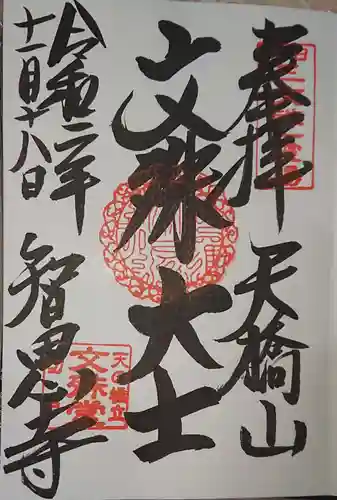 奉拝
天橋山
文殊大士
令和二年
十一月十八日
智恩寺
天橋立
文珠堂